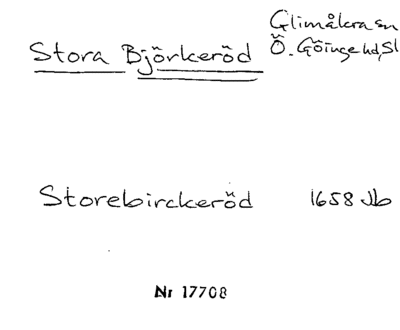 Glimåkra sn
Stora Björkeröd Ö. Göinge hd, Sk
Storebirckeröd 1658 Jb
Nr 17708